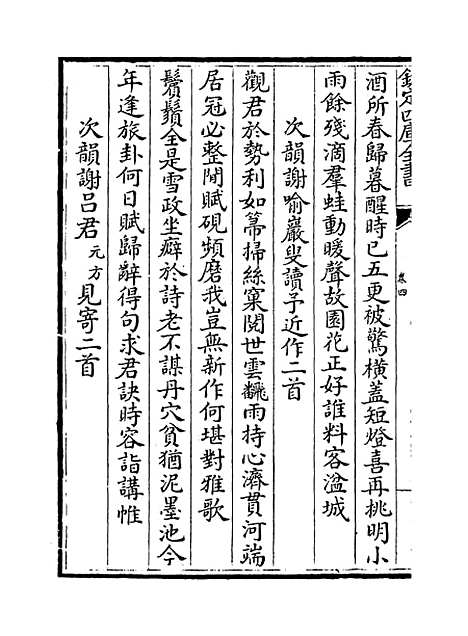 欽定四庫全書
卷四
酒所春歸暮醒時已五更被驚橫蓋短燈喜再挑明小
雨餘殘滴羣蛙動暖聲故園花正好誰料客湓城
次韻謝喻巖叟讀予近作二首
觀君於勢利如箒掃絲窠閱世雲飜雨持心濟貫河端
居冠必整閒賦硯頻磨我豈無新作何堪對雅歌
鬢鬚全是雪政坐癖於詩老不謀丹穴貧猶泥墨池今
年逢旅卦何日賦歸辭得句求君訣時容詣講帷
次韻謝呂君元方見寄二首